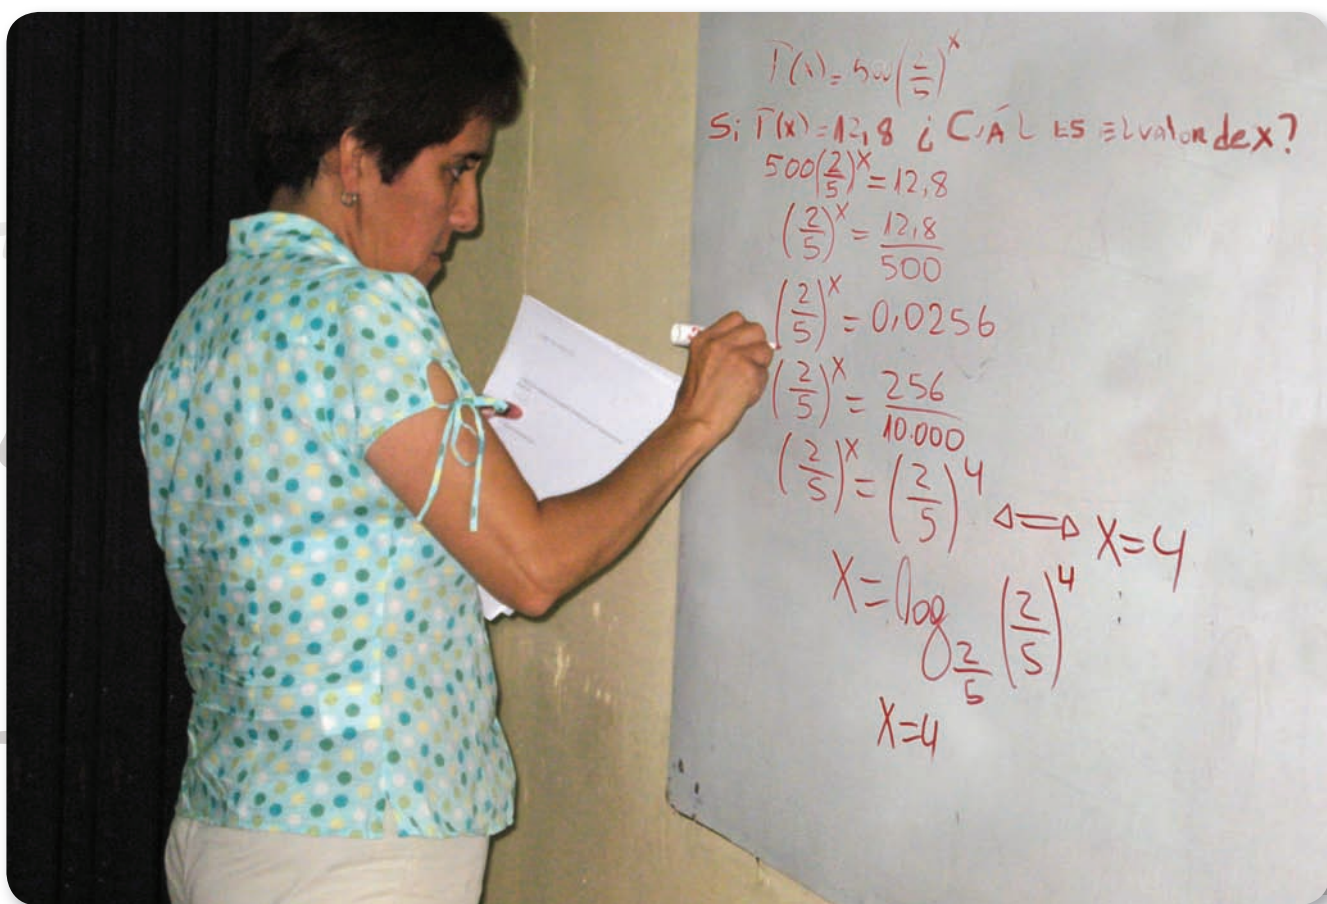 T(x) = 500(2/5)^x
Si T(x) = 12,8 ¿ CÁL ES EL valor de x?
500(2/5)^x = 12,8
(2/5)^x = 12,8/500
(2/5)^x = 0,0256
(2/5)^x = 256/10.000
(2/5)^x = (2/5)^4 ⟺ X=4
X = log_{2/5} (2/5)^4
X=4